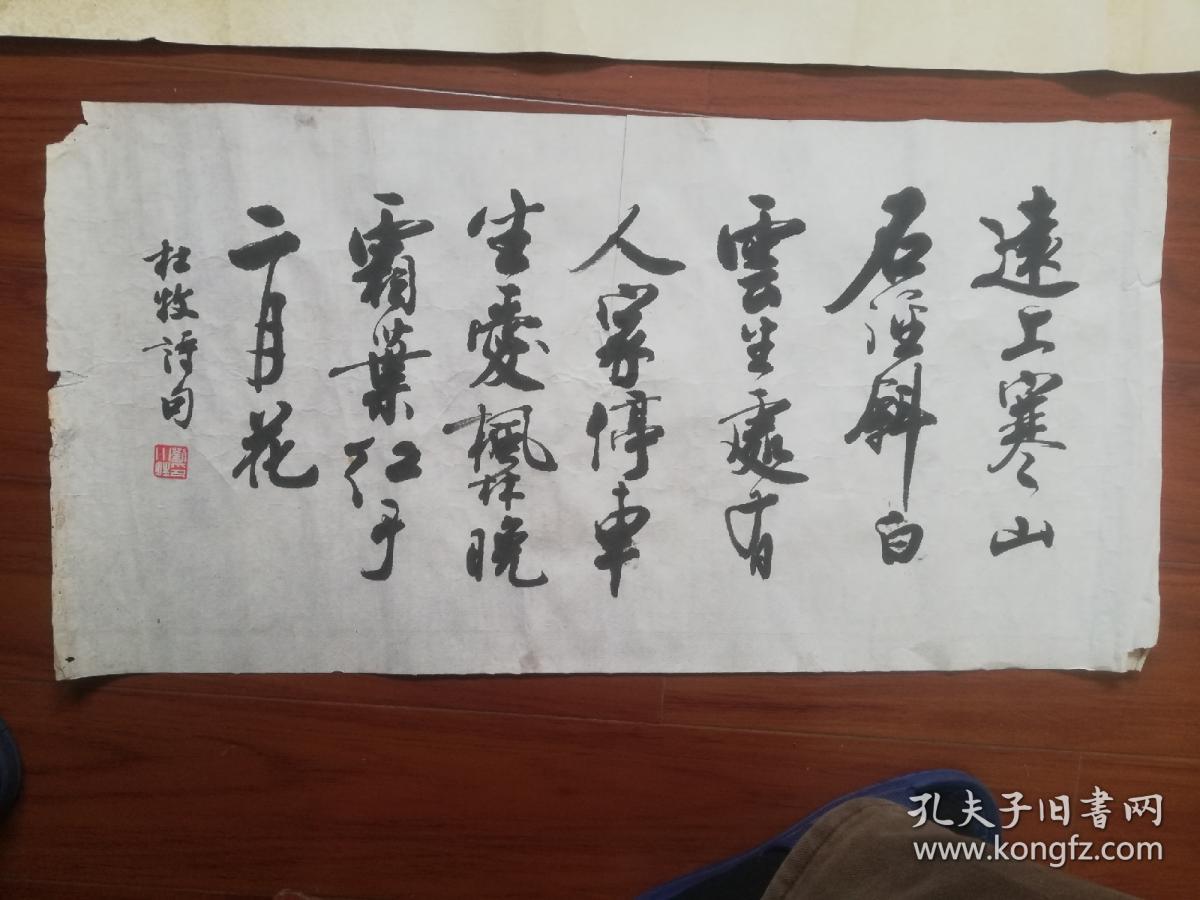 遠上寒山
石径斜白
雲生處有
人家停車
坐愛楓林晚
霜葉红于
二月花
杜牧詩句
孔夫子旧書网
www.kongfz.com